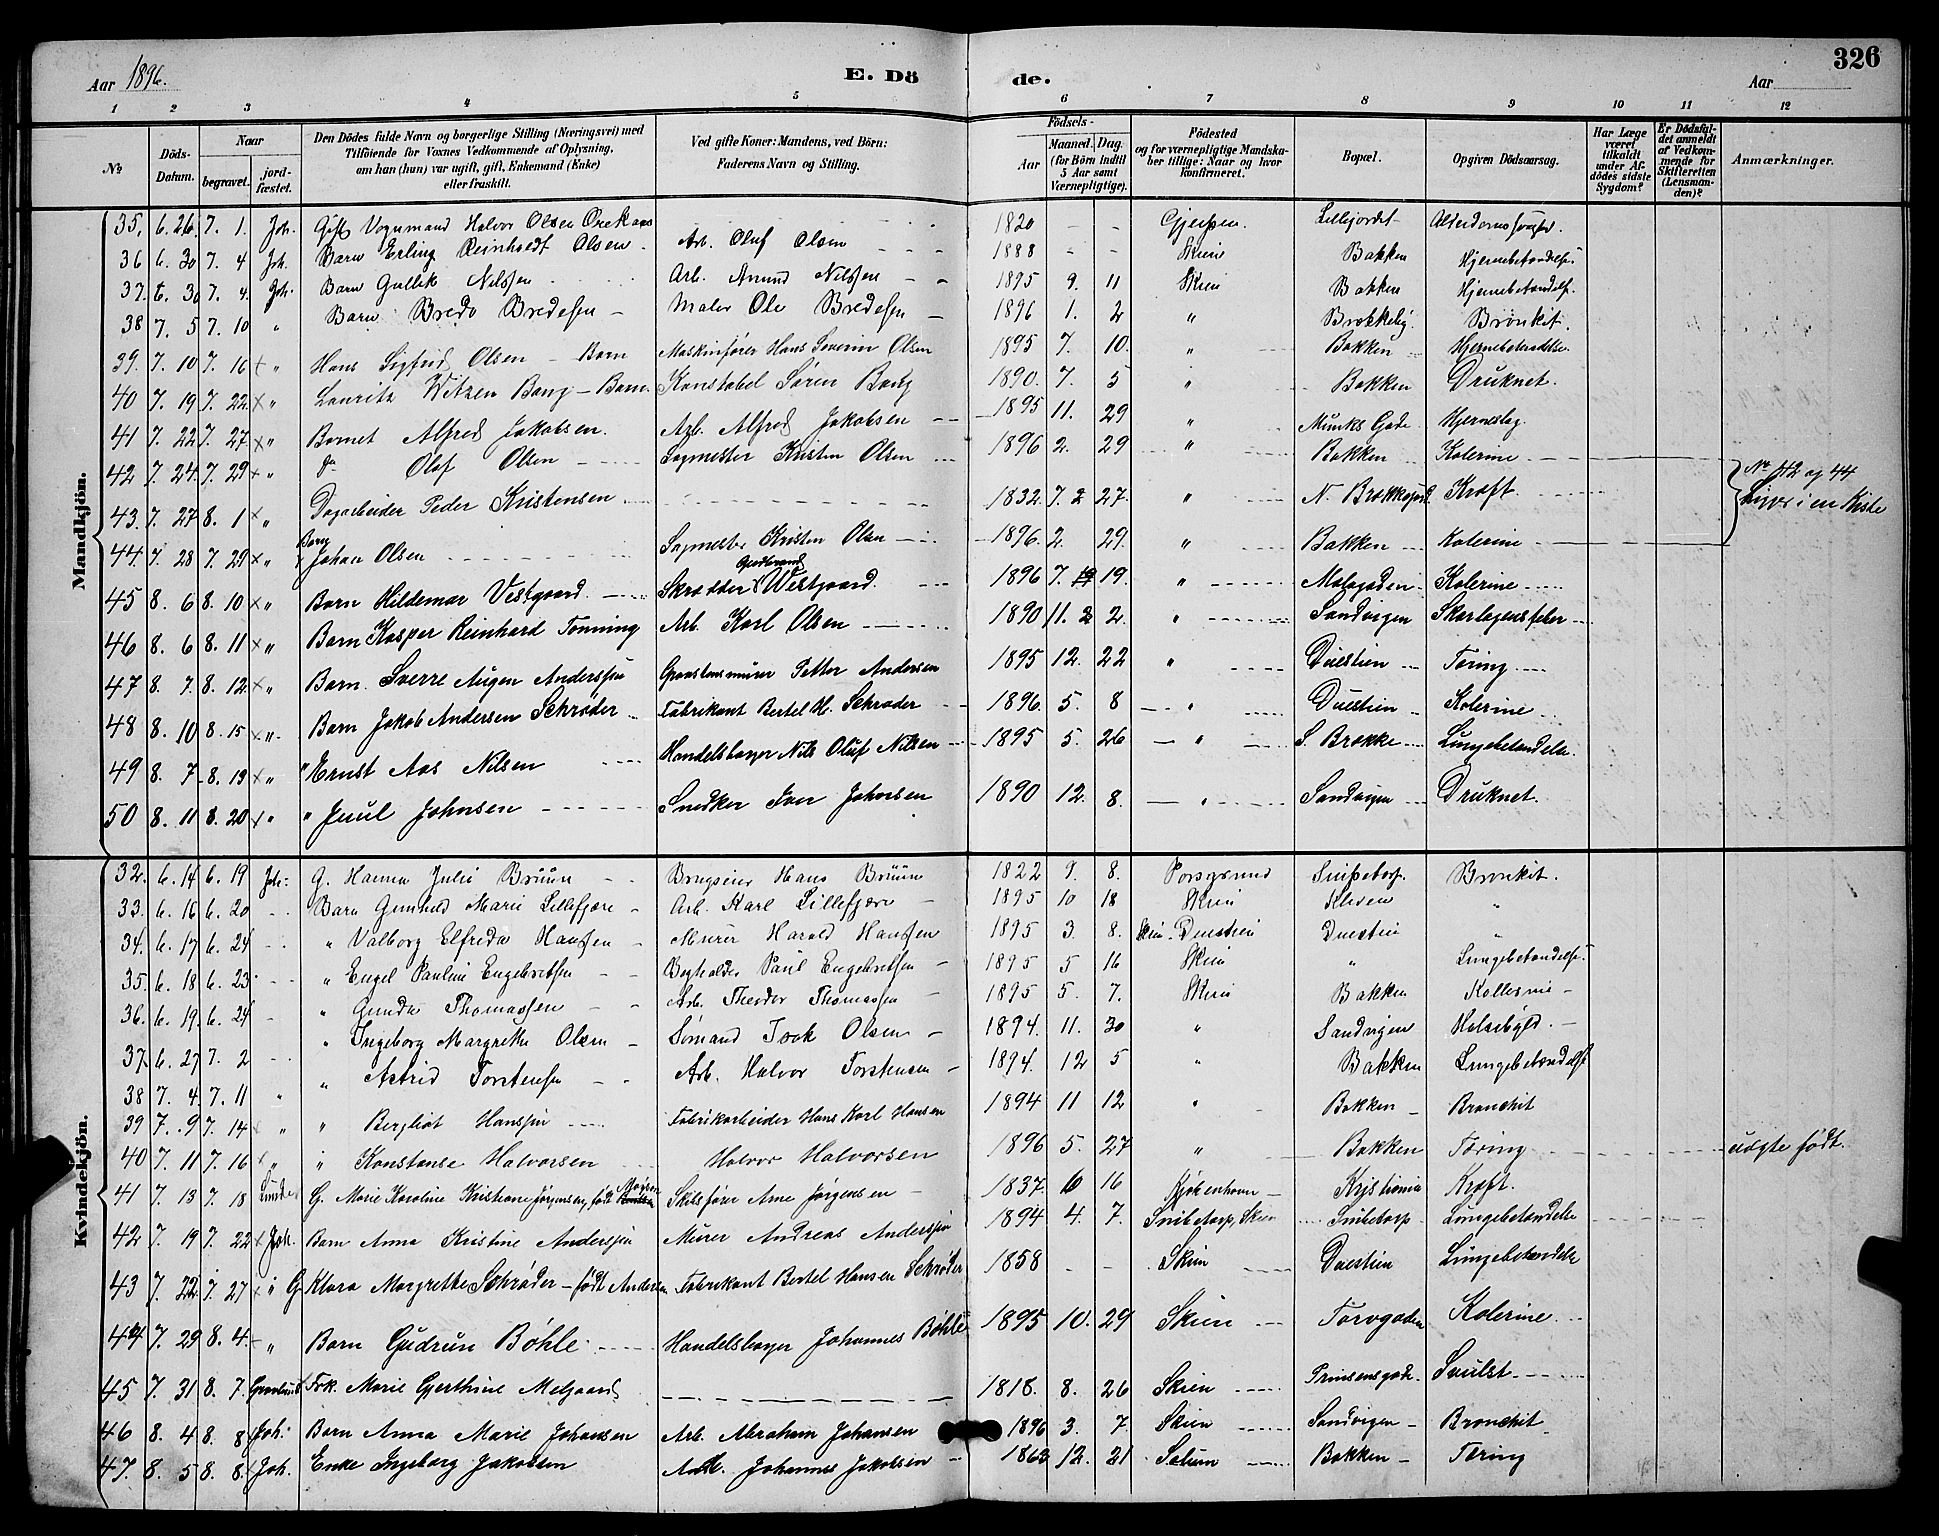 Aar 1896. E. Dö de. Aar 326
1 2 3 4 5 6 7 8 9 10 11 12
No Döds-Datum. Naar begravet. jordfæstet. Den Dödes fulde Navn og borgerlige Stilling (Næringsvei) med Tilföiende for Voxnes Vedkommende af Oplysning, om han (hun) var ugift, gift, Enkemand (Enke) eller fraskilt. Ved gifte Koner: Mandens, ved Börn: Faderens Navn og Stilling. Födsels- Aar Maaned. Dag. (for Börn indtil 5 Aar samt Værnepligtige). Födested og for værnepligtige Mandskaber tillige: Naar og hvor konfirmeret. Bopæl. Opgiven Dödsaarsag. Har Læge været tilkaldt under Afdödes sidste Sygdom? Er Dödsfaldet anmeldt af Vedkommende for Skifteretten (Lensmanden)? Anmærkninger.
Mandkjön.
35, 6. 26. 7. 1. Joh. Gift Vognmand Halvor Olsen 1820 - - Gjerpen Lillejordet
36 6. 30 7. 4 Joh. Barn Erling Reinholdt Olsen - Arb. Oluf Olsen - - 1888 - - Skien Bakken Hjernebetændelse.
37. 6. 30 7. 4. Joh. Barn Gullik Nilssen Arb. Amund Nilssen - - 1895 9. 11 Skien Bakken Hjernebetændelse.
38 7. 5 7. 10 " Barn Brede Bredesen - Maler Ole Bredesen - 1896 1. 2 " Brekkeby Bronkit.
39. 7. 10 7. 16 + " Hans Sigfrid Olsen - Barn Maskinfører Hans Severin Olsen 1895 7. 10. " Bakken Hjernebetændelse.
40 7. 19 7. 22 x " Lauritz Witzen Bang - Barn. Konstabel Søren Bang 1890. 7. 5 " Bakken Druknet.
41 7. 22 7. 27 x " Barnet Alfred Jakobsen. Arb. Alfred Jakobsen 1895 11. 29 " Munks Gade Hjerneslag
42 7. 24. 7. 29 x " do Olaf Olsen Sagmester Kristen Olsen 1896 2. 29 " Bakken Kolerine No 42 og 44
43. 7. 27 8. 1 x " Dagarbeider Peder Kristensen 1832 7. 2 27. " N. Brekkejord Kræft. Ligger i en Kiste
44. 7. 28 7. 29 x " Barn Johan Olsen Sagmester Kristen Olsen 1896. 2. 29. " Bakken Kolerine
45 8. 6 8. 10 x " Barn Hildemar Vestgaard. Skrædder Gudbrand Westgaard. 1896 7. 19. " Malegaden Kolerine
46 8. 6 8. 11 x " Barn Kasper Reinhard Tonning Arb. Karl Olsen 1890 11. 2 2. " Sandvigen Skarlagensfeber
47 8. 7. 8. 12 x " Barn. Sverre Augen Anderssen Petter Andersen 1895 12. 22 " Duestien Tæring
48 8. 10 8. 15 x " Barn Jakob Andersen Schrøder Fabrikant Bertel H. Schrøder 1896. 5. 8 " Duestien Kolerine
49 8. 7 8. 13 x " " Ernst Aas Nilsen Handelsborger Nils Oluf Nilsen 1895 5. 26 " S. Brekke Lungebetændelse.
50 8. 11 8. 20 x " " Juul Johnsen Snedker Iver Johnsen 1890 12. 8. " Sandvigen Druknet.
Kvindekjön.
32. 6. 14 6. 19 Joh. G. Hanna Julie Bruun - - Brugseier Hans Bruun 1822 9. 8. Porsgrund Snipetorp. Bronkit.
33. 6. 16 6. 20 - Barn Gunhild Marie Lillefjære - Arb. Karl Lillefjære - 1895 10 18 Skien Kleven "
34. 6. 17 6. 24 - " Valborg Elfreda Hanssen - Murer Harald Hanssen 1895 3. 8. Skien Duestien Duestien "
35. 6. 18 6. 23 - " Engel Pauline Engebretsen - - Paul Engebretsen - 1895 5 16 Skien " Lungebetændelse.
36. 6. 19. 6. 24 - " Gunda Thomassen - - Arb. Theodor Thomassen - 1895 5. 7. Skien Bakken Kollerine -
37. 6. 27 7. 2 - " Ingeborg Margrethe Olsen - - Sømand Isak Olsen - 1894. 11. 30 " Sandvigen Halsebyld. -
38 7. 4. 7. 11 " " Astrid Torstensen - - Arb. Halvor Torstensen - 1894. 12 5 " Bakken Lungebetændelse
39 7. 9 7. 14 " " Bergliot Hanssen Fabrikarbeider Hans Karl Hansen 1894 11 12 " Bakken Bronchit
40 7. 11 7. 16 x " " Konstanse Halvorsen Halvor Halvorsen 1896 5. 27 " Bakken Tæring uægte født.
41 7. 13 7. 18 Lunde G. Marie Karoline Kristiane Jørgensen, født Skibsfører Arne Jørgensen 1837. 6 16 Kjøbenhavn Kristiania Kræft.
42 7. 19 7. 22 x Joh. Barn Anna Kristine Anderssen Murer Andreas Anderssen 1894 4. 7. Snibetorp, Skien Snibetorp Lungebetændelse
43 7. 22 7. 27 x " G. Klara Margrethe Schrøder - født Andersen Fabrikant Bertel Hansen Schrøder 1858 - - Skien Duestien Lungebetændelse
44 7. 29 8. 4. " Barn Gudrun Bøhle Handelsborger Johannes Bøhle 1895 10. 29 Skien Torvgaden Kolerine
45 7. 31 8. 7. Frk. Marie Gjerthine Melgaard 1818. 8. 26 Skien Prinsensgade. Svulst
46 8. 4 8. 8 Joh. Barn Anna Marie Johansen Arb. Abraham Johansen 1896 3. 7. Skien Sandvigen Bronchit
47. 8. 5 8. 8. Joh. Enke Ingeborg Jakobsen Arb. Johannes Jakobsen 1862 12. 21 Solum Bakken Tæring